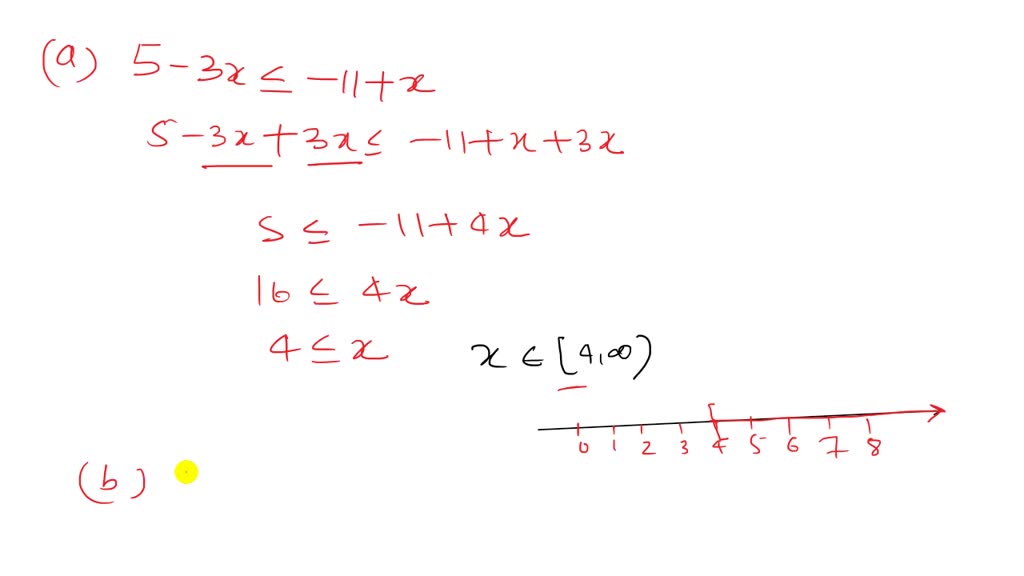 (a) 5 - 3x ≤ -11 + x
5 - 3x + 3x ≤ -11 + x + 3x
5 ≤ -11 + 4x
16 ≤ 4x
4 ≤ x x ∈ [4,∞)
0 1 2 3 4 5 6 7 8
(b)